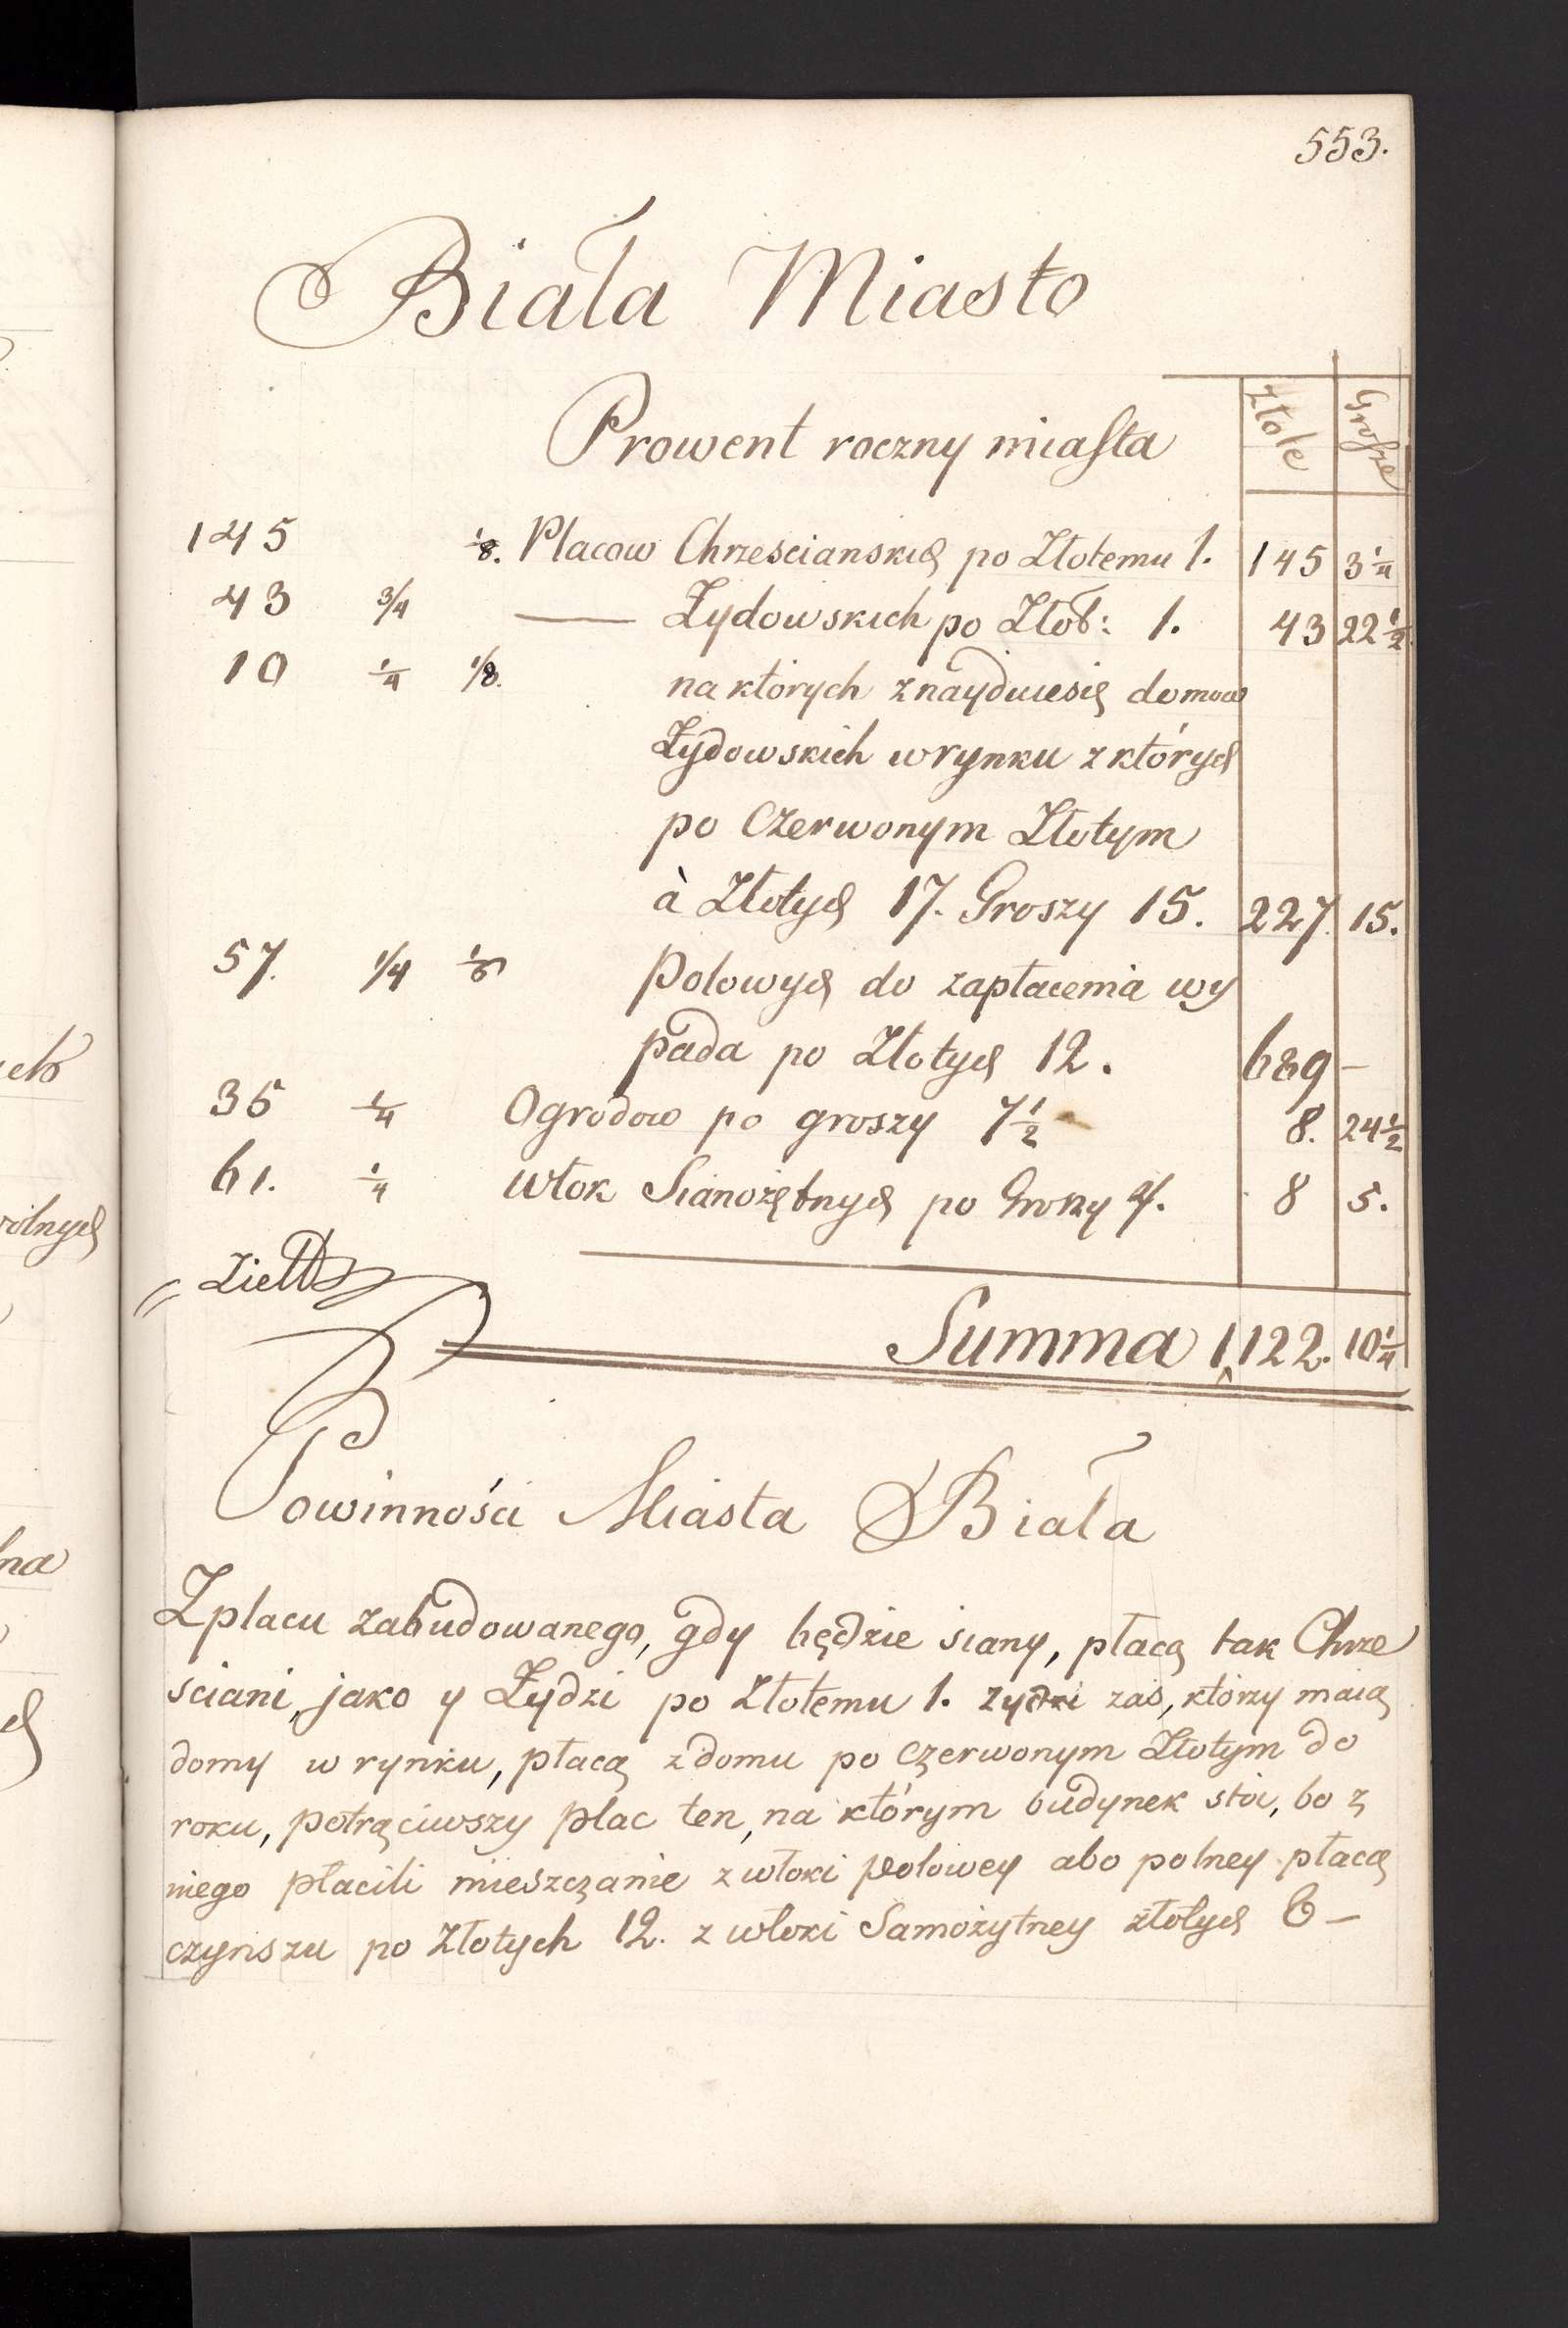 553.
Biała Miasto
Prowent roczny miasta Złote Grosze
145 1/8. Placow Chrześcianskich po Złotemu 1. 145 3 1/4
43 3/4 — Żydowskich po Złot: 1. 43 22 1/2
10 1/4 1/8. na których znayduie się domow
Żydowskich w rynku z których
po Czerwonym Złotym
à Złotych 17. Groszy 15. 227. 15.
57. 1/4 polowych do zapłacenia wy
pada po Złotych 12. 689 —
35 1/4 Ogrodow po groszy 7 1/2 8. 24 1/2
61. 1/4 włok Sianożętnych po Groszy 4. 8 5.
Summa 1,122. 10 1/4
Powinności Miasta Biała
Z placu zabudowanego, gdy będzie siany, płacą tak Chrze
sciani, jako y Żydzi po Złotemu 1. zydzi zas, którzy maią
domy w rynku, płacą z domu po czerwonym Złotym do
roku, potrąciwszy plac ten, na którym budynek stoi, bo z
niego płacili mieszczanie z włoki polowey abo polney płacą
czynszu po Złotych 12. z włoki Samożytney złotych